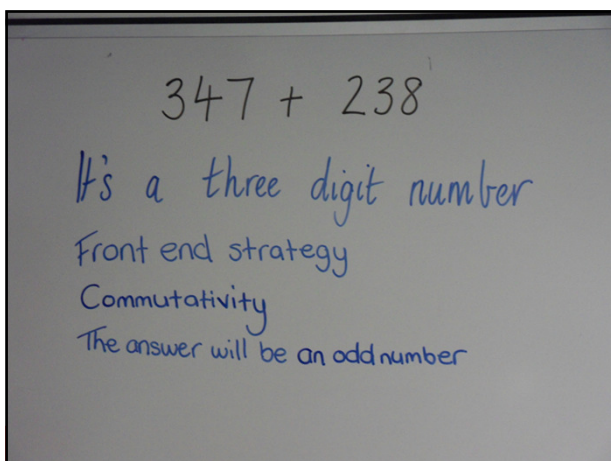 347 + 238
It's a three digit number
Front end strategy
Commutativity
The answer will be an odd number